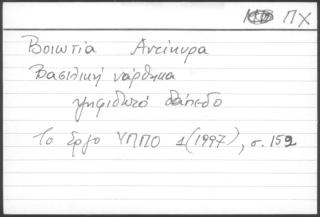 ΠΧ
Βοιωτία Αντίκυρα
Βασιλική νάρθηκα
ψηφιδωτό δάπεδο
Το Έργο ΥΠΠΟ 1(1997), σ. 152